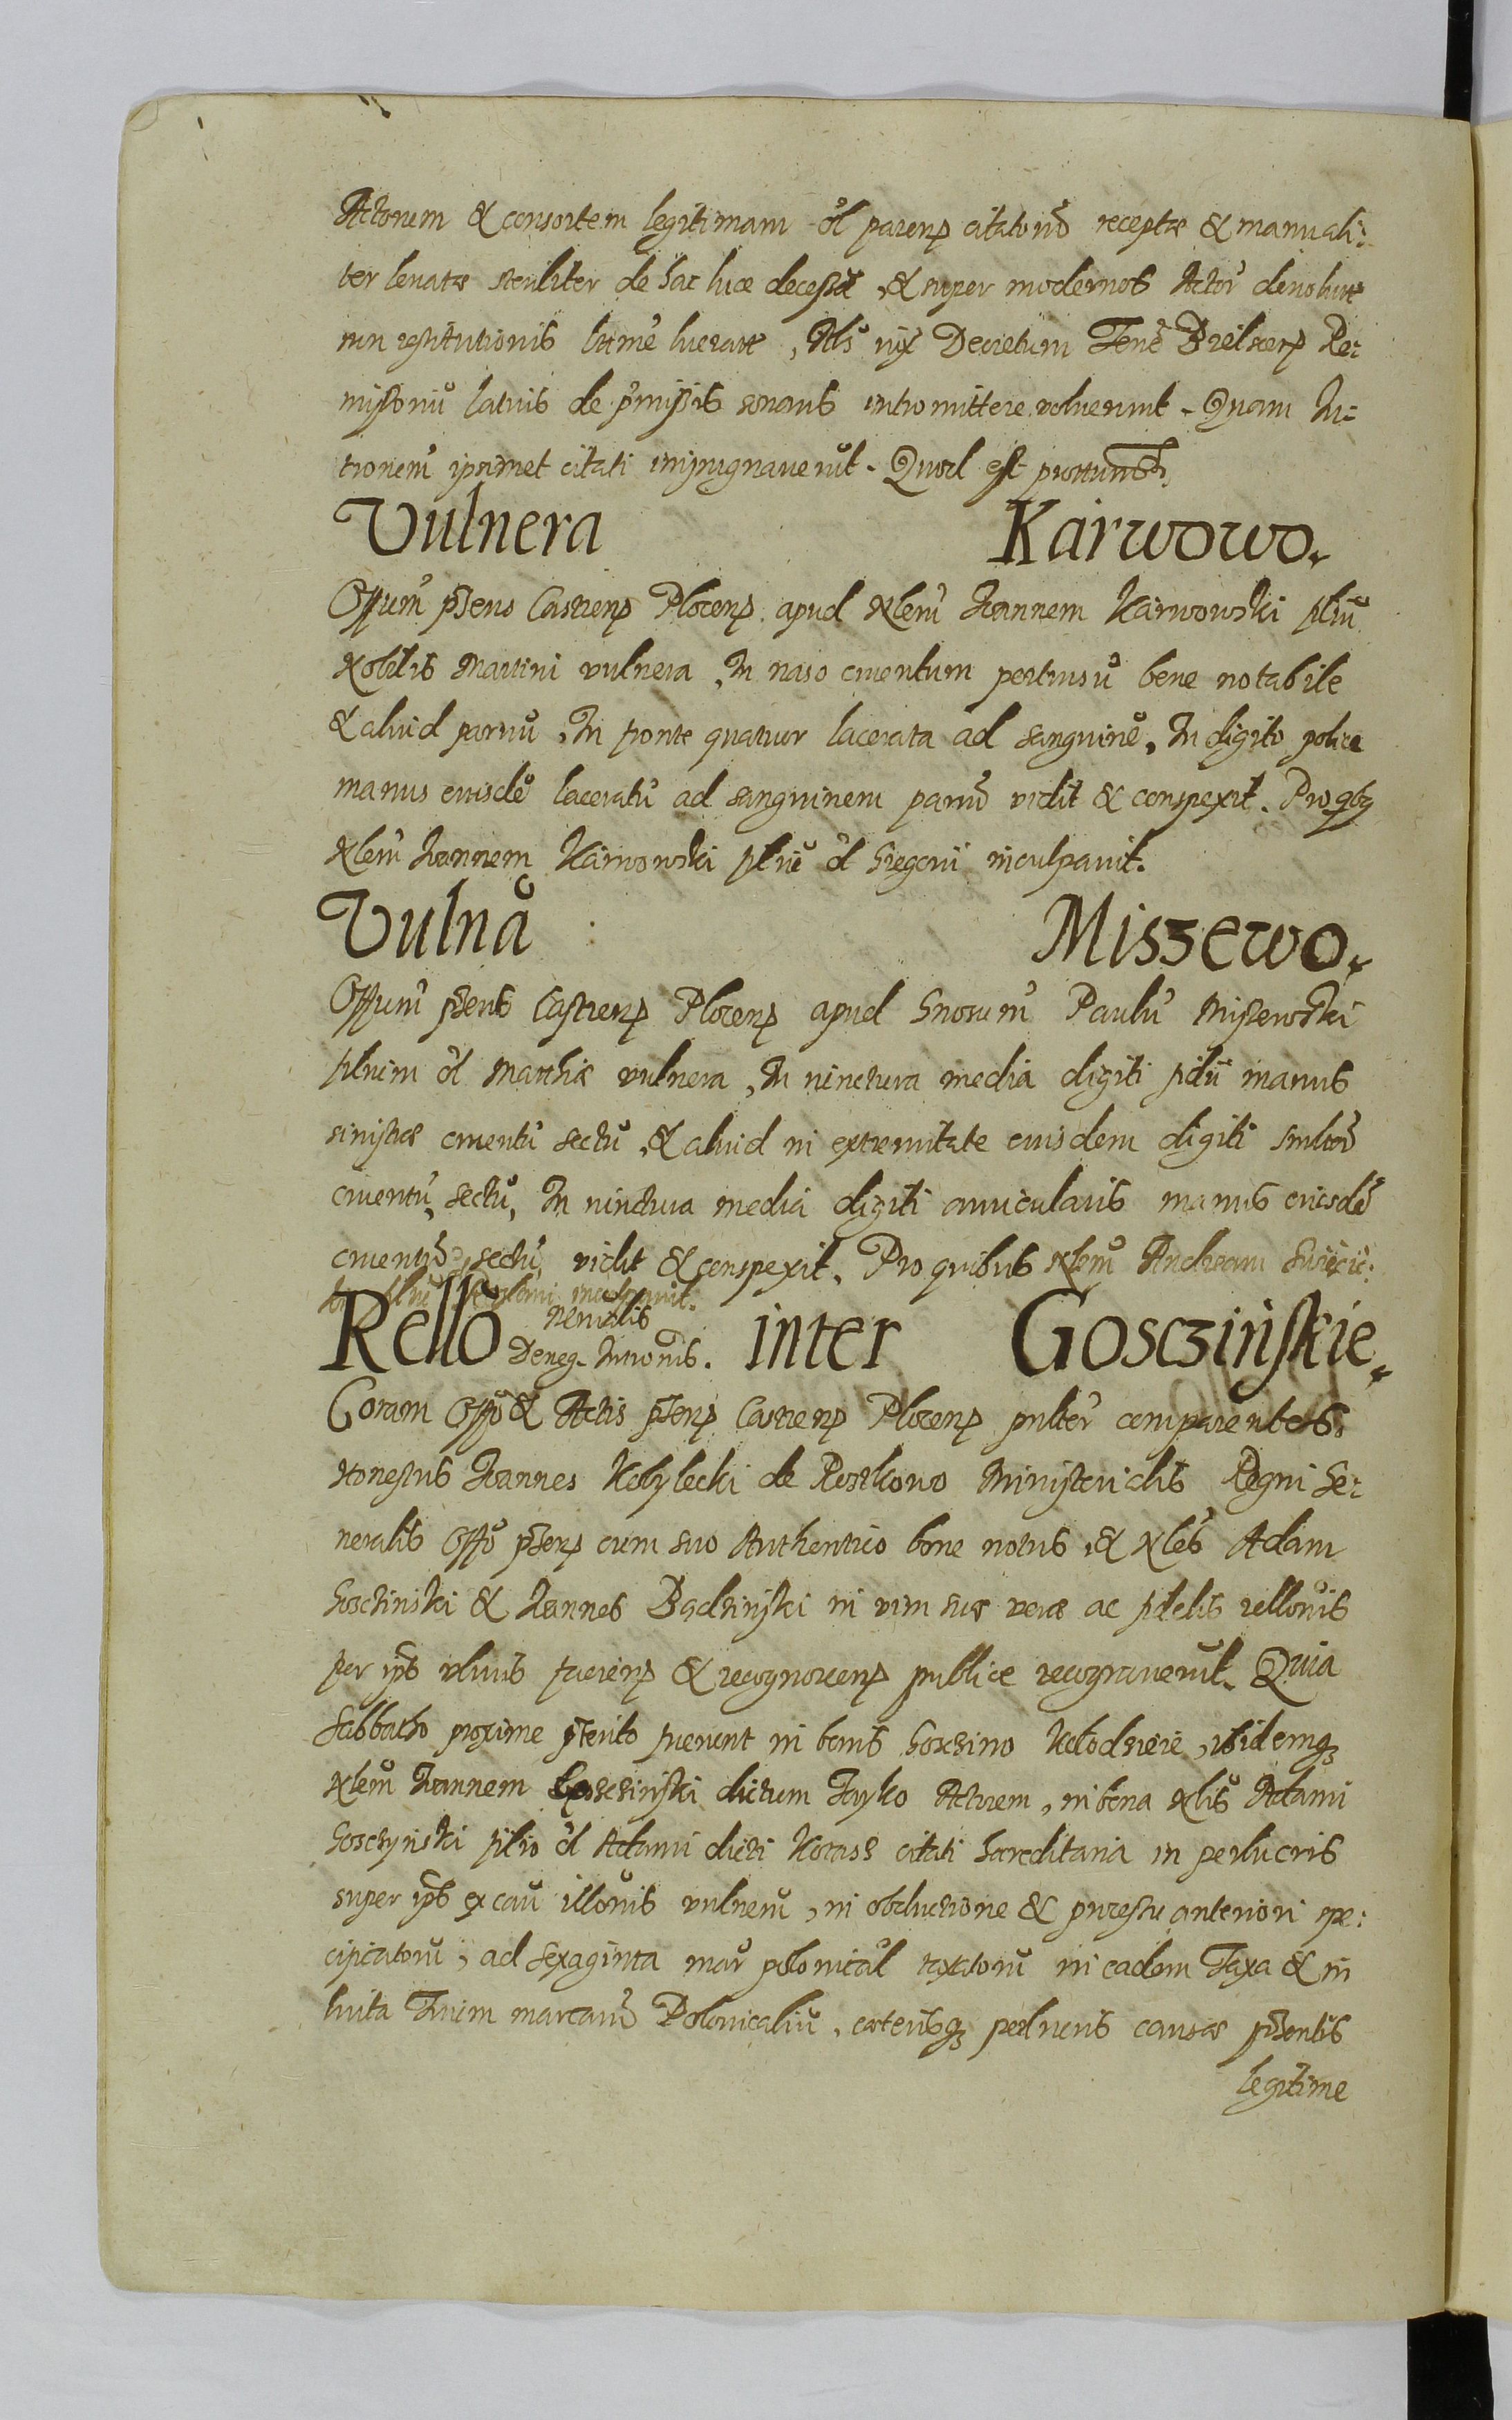 Actorem & consortem legitimam ol parens citatorũ receptæ & manuali:
ter levatæ steriliter de hac luce decessæ, & super modernos Actor̃ devolutæ
non restitutionis ltime lucratæ, Als iux Decretum Terre Bielscen̄ Re:
missoriũ latius de p̃missis sonans intromittere voluerunt. Quam In:
tronem̃ ipsimet citati impugnaverũt. Quod est
Vulnera Karwowo.
Offium̃ p̃sens Castren̄ Plocen̄ apud Nlem̃ Ioannem Karwowski filiũ
Nobilis Martini vulnera, In naso cruentum pertusũ bene notabile
& aliud parvũ, In fronte quatuor lacerata ad sanguinẽ, In digito police
manus eiusdẽ laceratũ ad sanguinem parvũ vidit & conspexit. Pro qbq
Nlem̃ Ioannem Karwowski filiũ ol Gregorii inculpavit.
Vulnã Miszewo.
Offium̃ p̃sens Castren̄ Plocen̄ apud Gnosum̃ Paulũ Miszewski
filium ol Matthiæ vulnera, In iunctura media digiti fidii manus
sinistræ cruentũ sectũ, & aliud in extremitate eiusdem digiti similr̃
cruentũ, sectũ, In iunctura media digiti auricularis manus eiusdẽ
cruentũ, sectũ vidit & conspexit. Pro quibus Nlem̃ Andream
filiũ inculpavit.
Rello nerialis
Deneg. Intronis. inter Gosczinskie.
Coram Offo & Actis p̃sen̄ Castren̄ Plocen̄ pnlter̃ comparentes,
Honestus Ioannes Kobylecki de Roszkowo Ministerialis Regni Ge:
neralis Offo p̃sen̄ cum suo Authentico bene notus, & Nles Adam
Gosczinski & Ioannes Bądzinski in vim suæ veræ ac fidelis rellonis
per ip̃s ultius facien̄ & recognoscen̄ publice recognoverũt. Quia
Sabbatho proxime p̃terito fuerunt in bonis Gosczino Kołodzieie, ibidemq;
Nlem̃ Ioannem Gosczinski dictum Jayko Actorem, in bona Nlis Adami
Gosczynski filio ol Adami dicti Korass citati hæreditaria in perlucris
super ip̃s ex cau illonis vulnerũ, in obductione & processu anteriori spe:
cificatorũ, ad sexaginta mar̃ polonical taxatorũ in eadem Taxa & in
luita Trium marcarũ Polonicaliũ, cæterisq; perlucris causæ p̃sentis
legitime